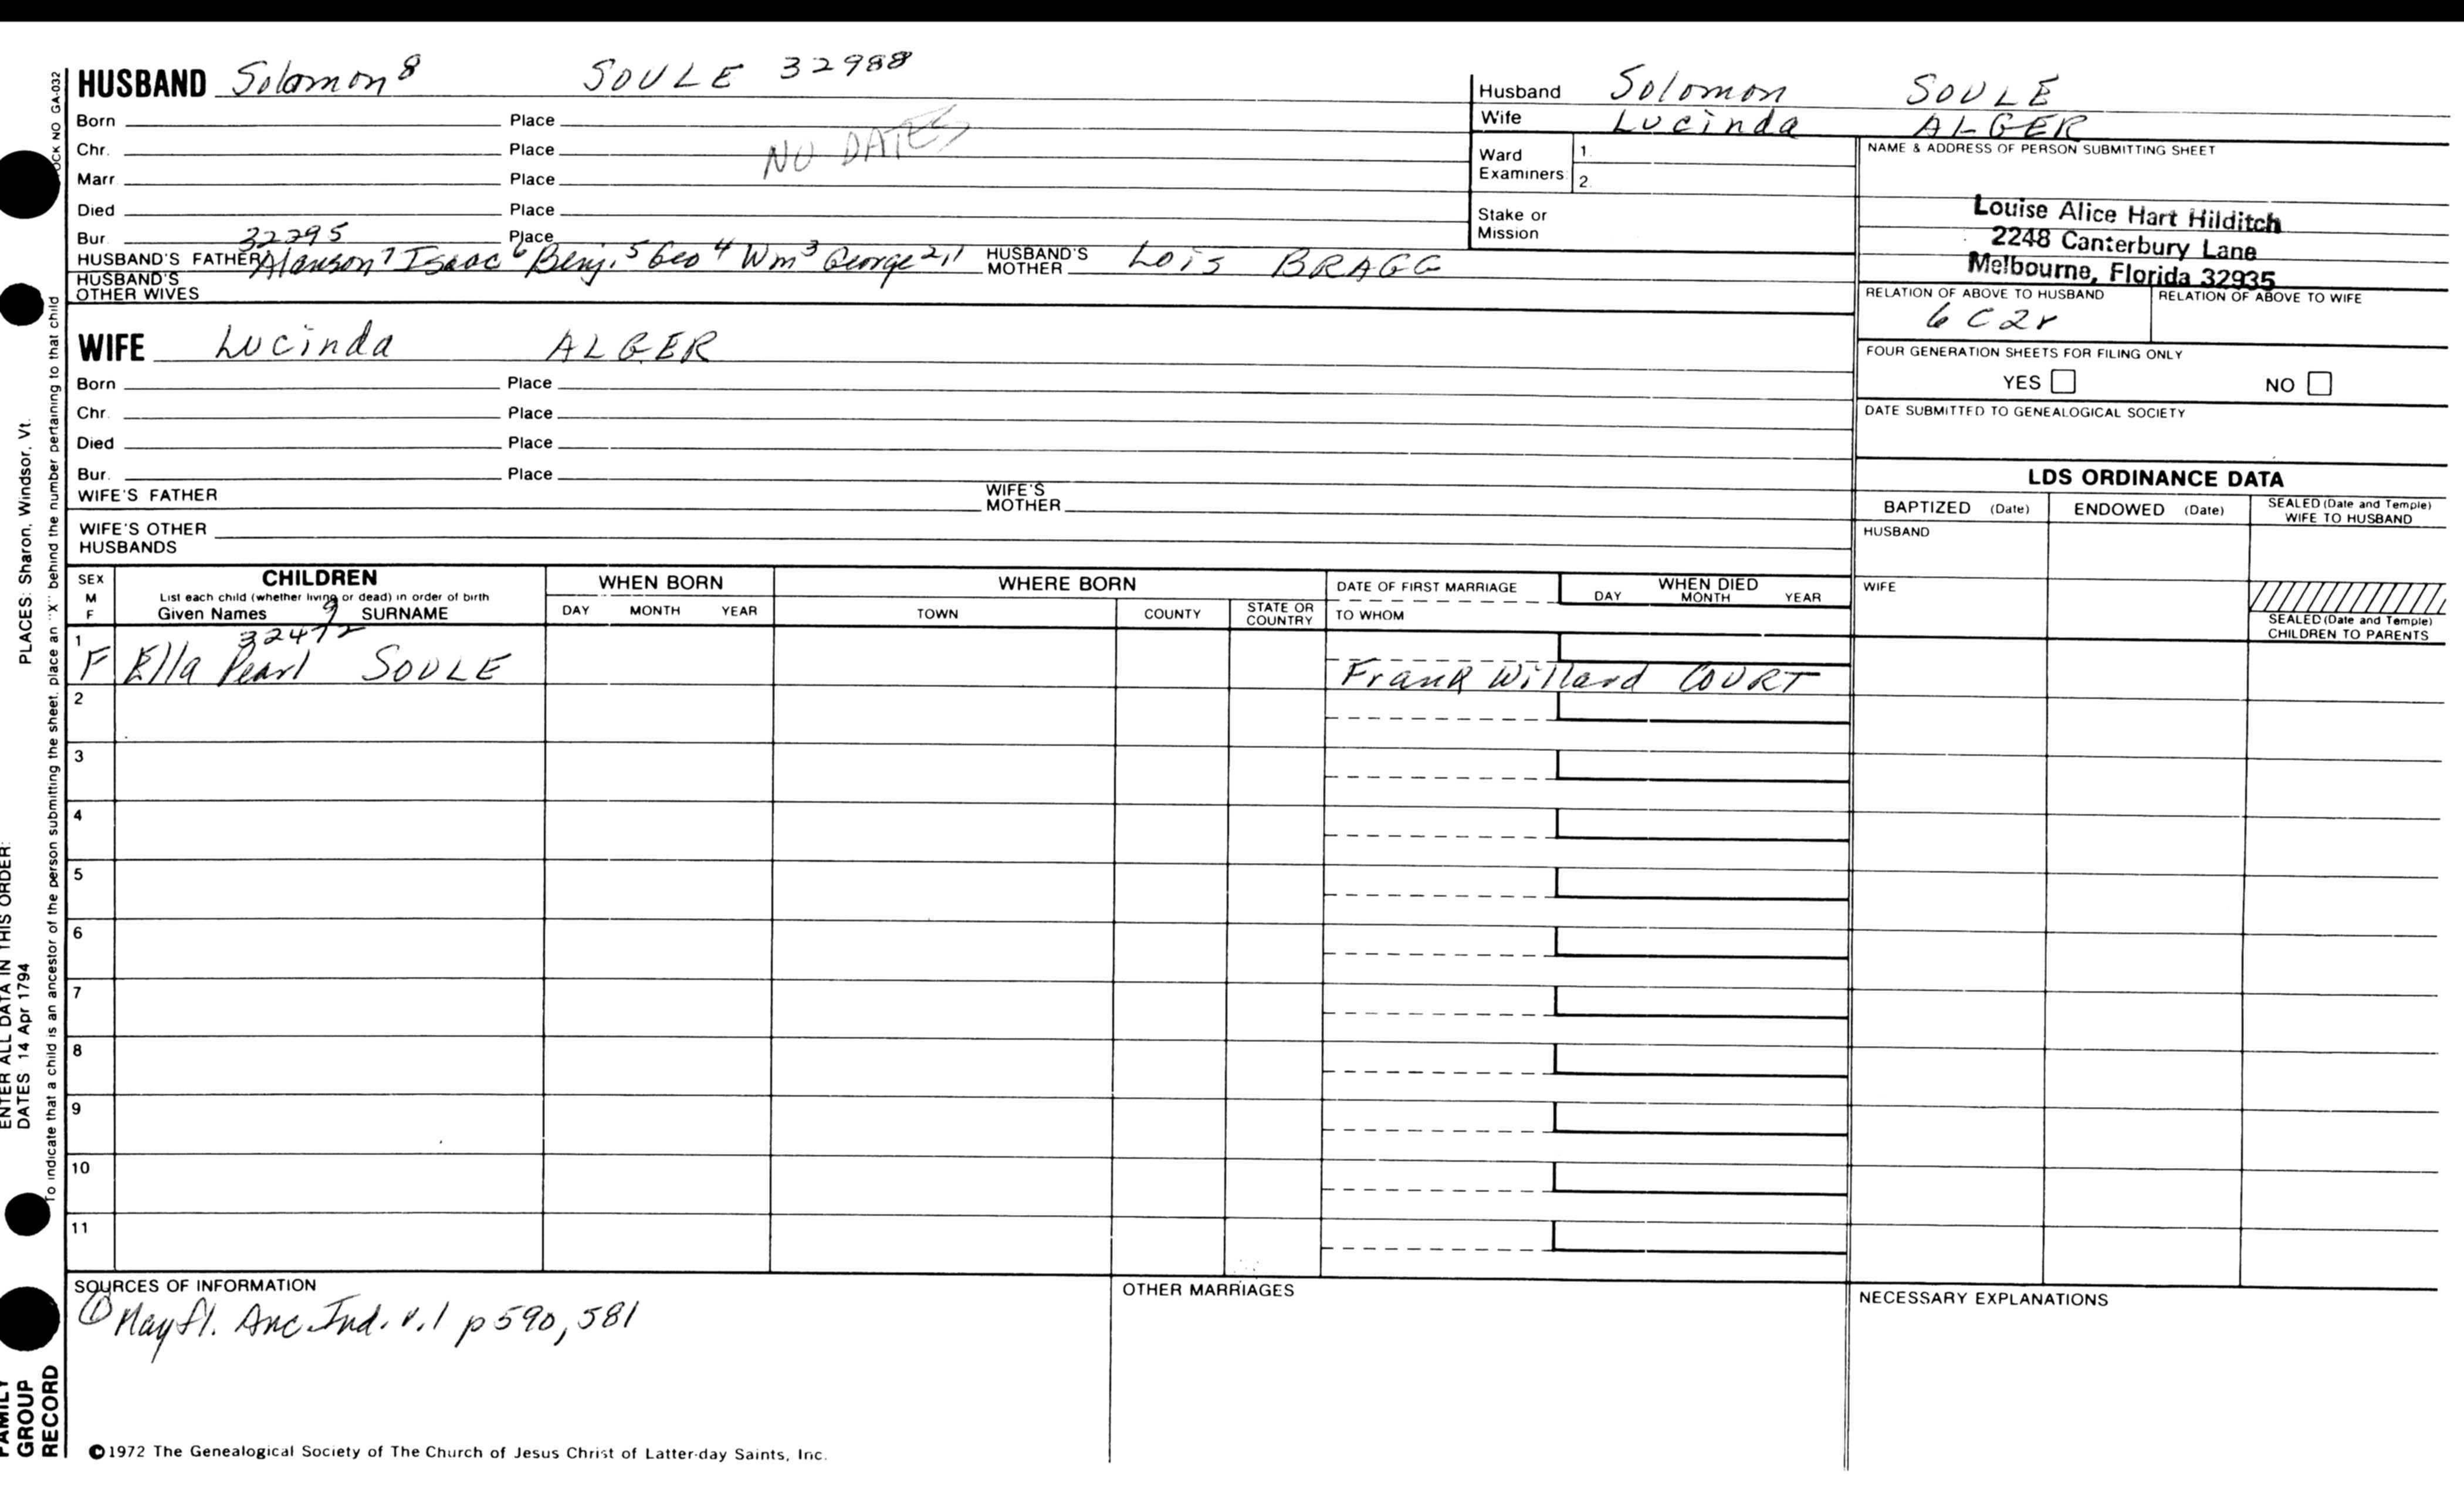 HUSBAND Solomon⁸ SOULE 32988
Born Place
Chr. Place
Marr Place
NO DATES
Died Place
Bur. Place
32295
HUSBAND'S FATHER Alanson⁷ Isaac⁶ Benj.⁵ Geo⁴ Wm³ George²,¹ HUSBAND'S MOTHER Lois BRAGG
HUSBAND'S OTHER WIVES
WIFE Lucinda ALGER
Born Place
Chr. Place
Died Place
Bur. Place
WIFE'S FATHER WIFE'S MOTHER
WIFE'S OTHER HUSBANDS
Husband Solomon SOULE
Wife Lucinda ALGER
Ward Examiners 1. 2.
Stake or Mission
NAME & ADDRESS OF PERSON SUBMITTING SHEET
Louise Alice Hart Hilditch
2248 Canterbury Lane
Melbourne, Florida 32935
RELATION OF ABOVE TO HUSBAND RELATION OF ABOVE TO WIFE
6 C 2 r
FOUR GENERATION SHEETS FOR FILING ONLY
YES NO
DATE SUBMITTED TO GENEALOGICAL SOCIETY
LDS ORDINANCE DATA
BAPTIZED (Date) ENDOWED (Date) SEALED (Date and Temple) WIFE TO HUSBAND
HUSBAND
WIFE
SEALED (Date and Temple) CHILDREN TO PARENTS
SEX M F
CHILDREN
List each child (whether living or dead) in order of birth
Given Names 9 SURNAME
WHEN BORN
DAY MONTH YEAR
WHERE BORN
TOWN COUNTY STATE OR COUNTRY
DATE OF FIRST MARRIAGE
TO WHOM
WHEN DIED
DAY MONTH YEAR
32472
1 F Ella Pearl SOULE Frank Willard COURT
2
3
4
5
6
7
8
9
10
11
SOURCES OF INFORMATION
① Mayfl. Anc. Ind. v.1 p 590, 581
OTHER MARRIAGES
NECESSARY EXPLANATIONS
©1972 The Genealogical Society of The Church of Jesus Christ of Latter-day Saints, Inc.
OCK NO GA-032
To indicate that a child is an ancestor of the person submitting the sheet, place an "X" behind the number pertaining to that child
PLACES: Sharon, Windsor, Vt.
ENTER ALL DATA IN THIS ORDER:
DATES 14 Apr 1794
FAMILY
GROUP
RECORD